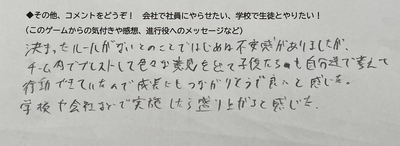 ◆その他、コメントをどうぞ！ 会社で社員にやらせたい、学校で生徒とやりたい！
(このゲームからの気付きや感想、進行役へのメッセージなど)
決まったルールがないとのことではじめは不安感がありましたが、
チーム内でブレストして色々な意見を出して子供たちも自分達で考えて
行動できていたので成長にもつながりそうで良いと感じた。
学校や会社などで実施したら盛り上がると感じた。